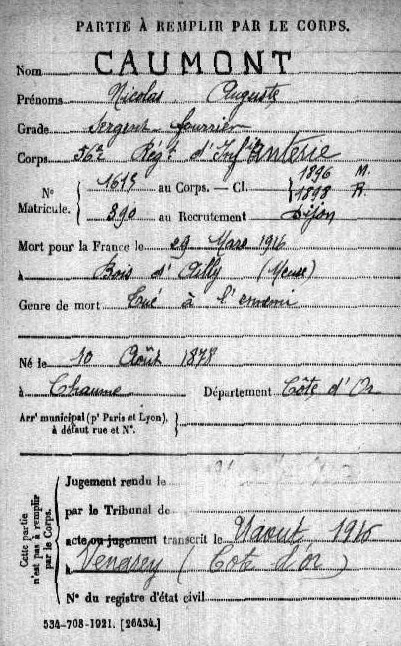 PARTIE À REMPLIR PAR LE CORPS.
Nom CAUMONT
Prénoms Nicolas Auguste
Grade Sergent-fourrier
Corps 56e Régt d'Infanterie
N° Matricule. { 1615 au Corps. — Cl. { 1896 M. 1898 R.
890 au Recrutement Dijon
Mort pour la France le 29 Mars 1916
à Bois d'Ailly (Meuse)
Genre de mort Tué à l'ennemi
Né le 10 Août 1878
à Chaume Département Côte d'Or
Arrt municipal (pr Paris et Lyon), à défaut rue et N°. }
Cette partie n'est pas à remplir par le Corps.
Jugement rendu le
par le Tribunal de
acte ou jugement transcrit le août 1916
à Venarey (Cote d'or)
N° du registre d'état civil
534-708-1921. [26434.]